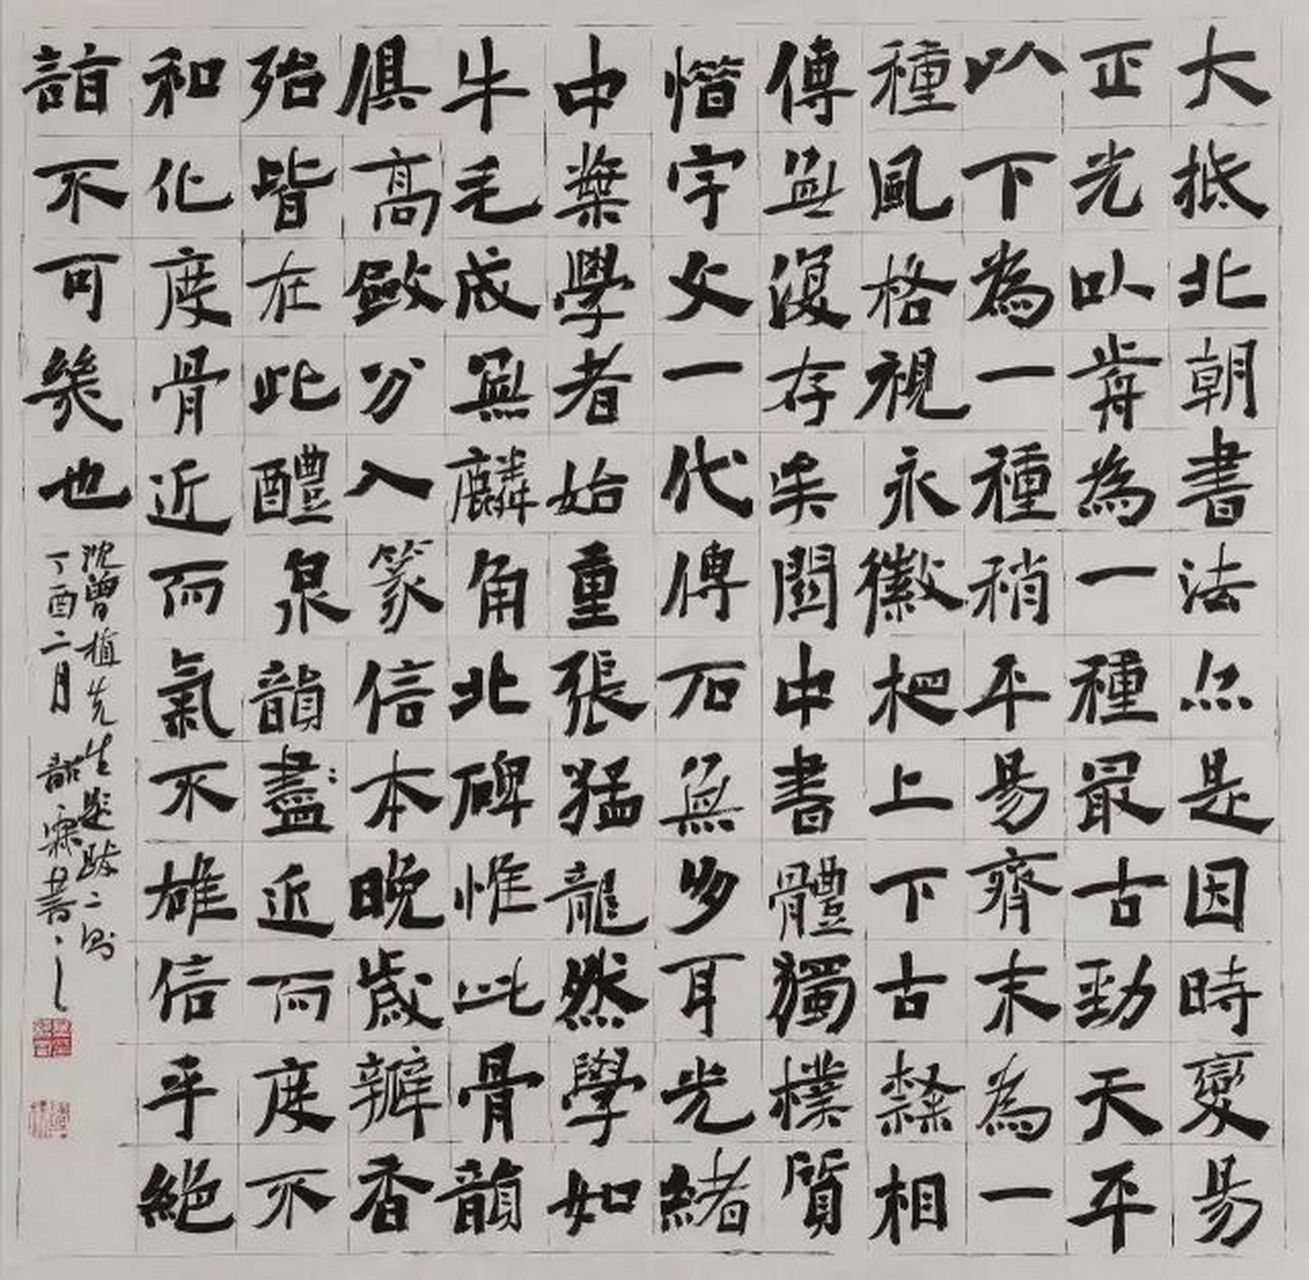 大抵北朝書法亦是因時變易
正光以歬為一種最古勁天平
以下為一種稍平易齊末為一
種風格視永徽相上下古隸相
傳無復存矣關中書體獨樸質
惜宇文一代傳石無多耳光緒
中葉學者始重張猛龍然學如
牛毛成無麟角北碑惟此骨韻
俱高斂分入篆信本晚歲瓣香
殆皆在此醴泉韻盡近而度不
和化度骨近而氣不雄信乎絕
詣不可幾也
沈曾植先生題跋二則
丁酉二月 韶霖書之